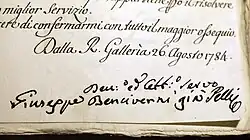 appartiene po il risolvere
miglior Servizio.
cete di confermarmi con tutto il maggior ossequio.
Dalla R. Galleria 26 Agosto 1784.
Dev.o ed Obb.o Servo
Giuseppe Bencivenni già Pelli